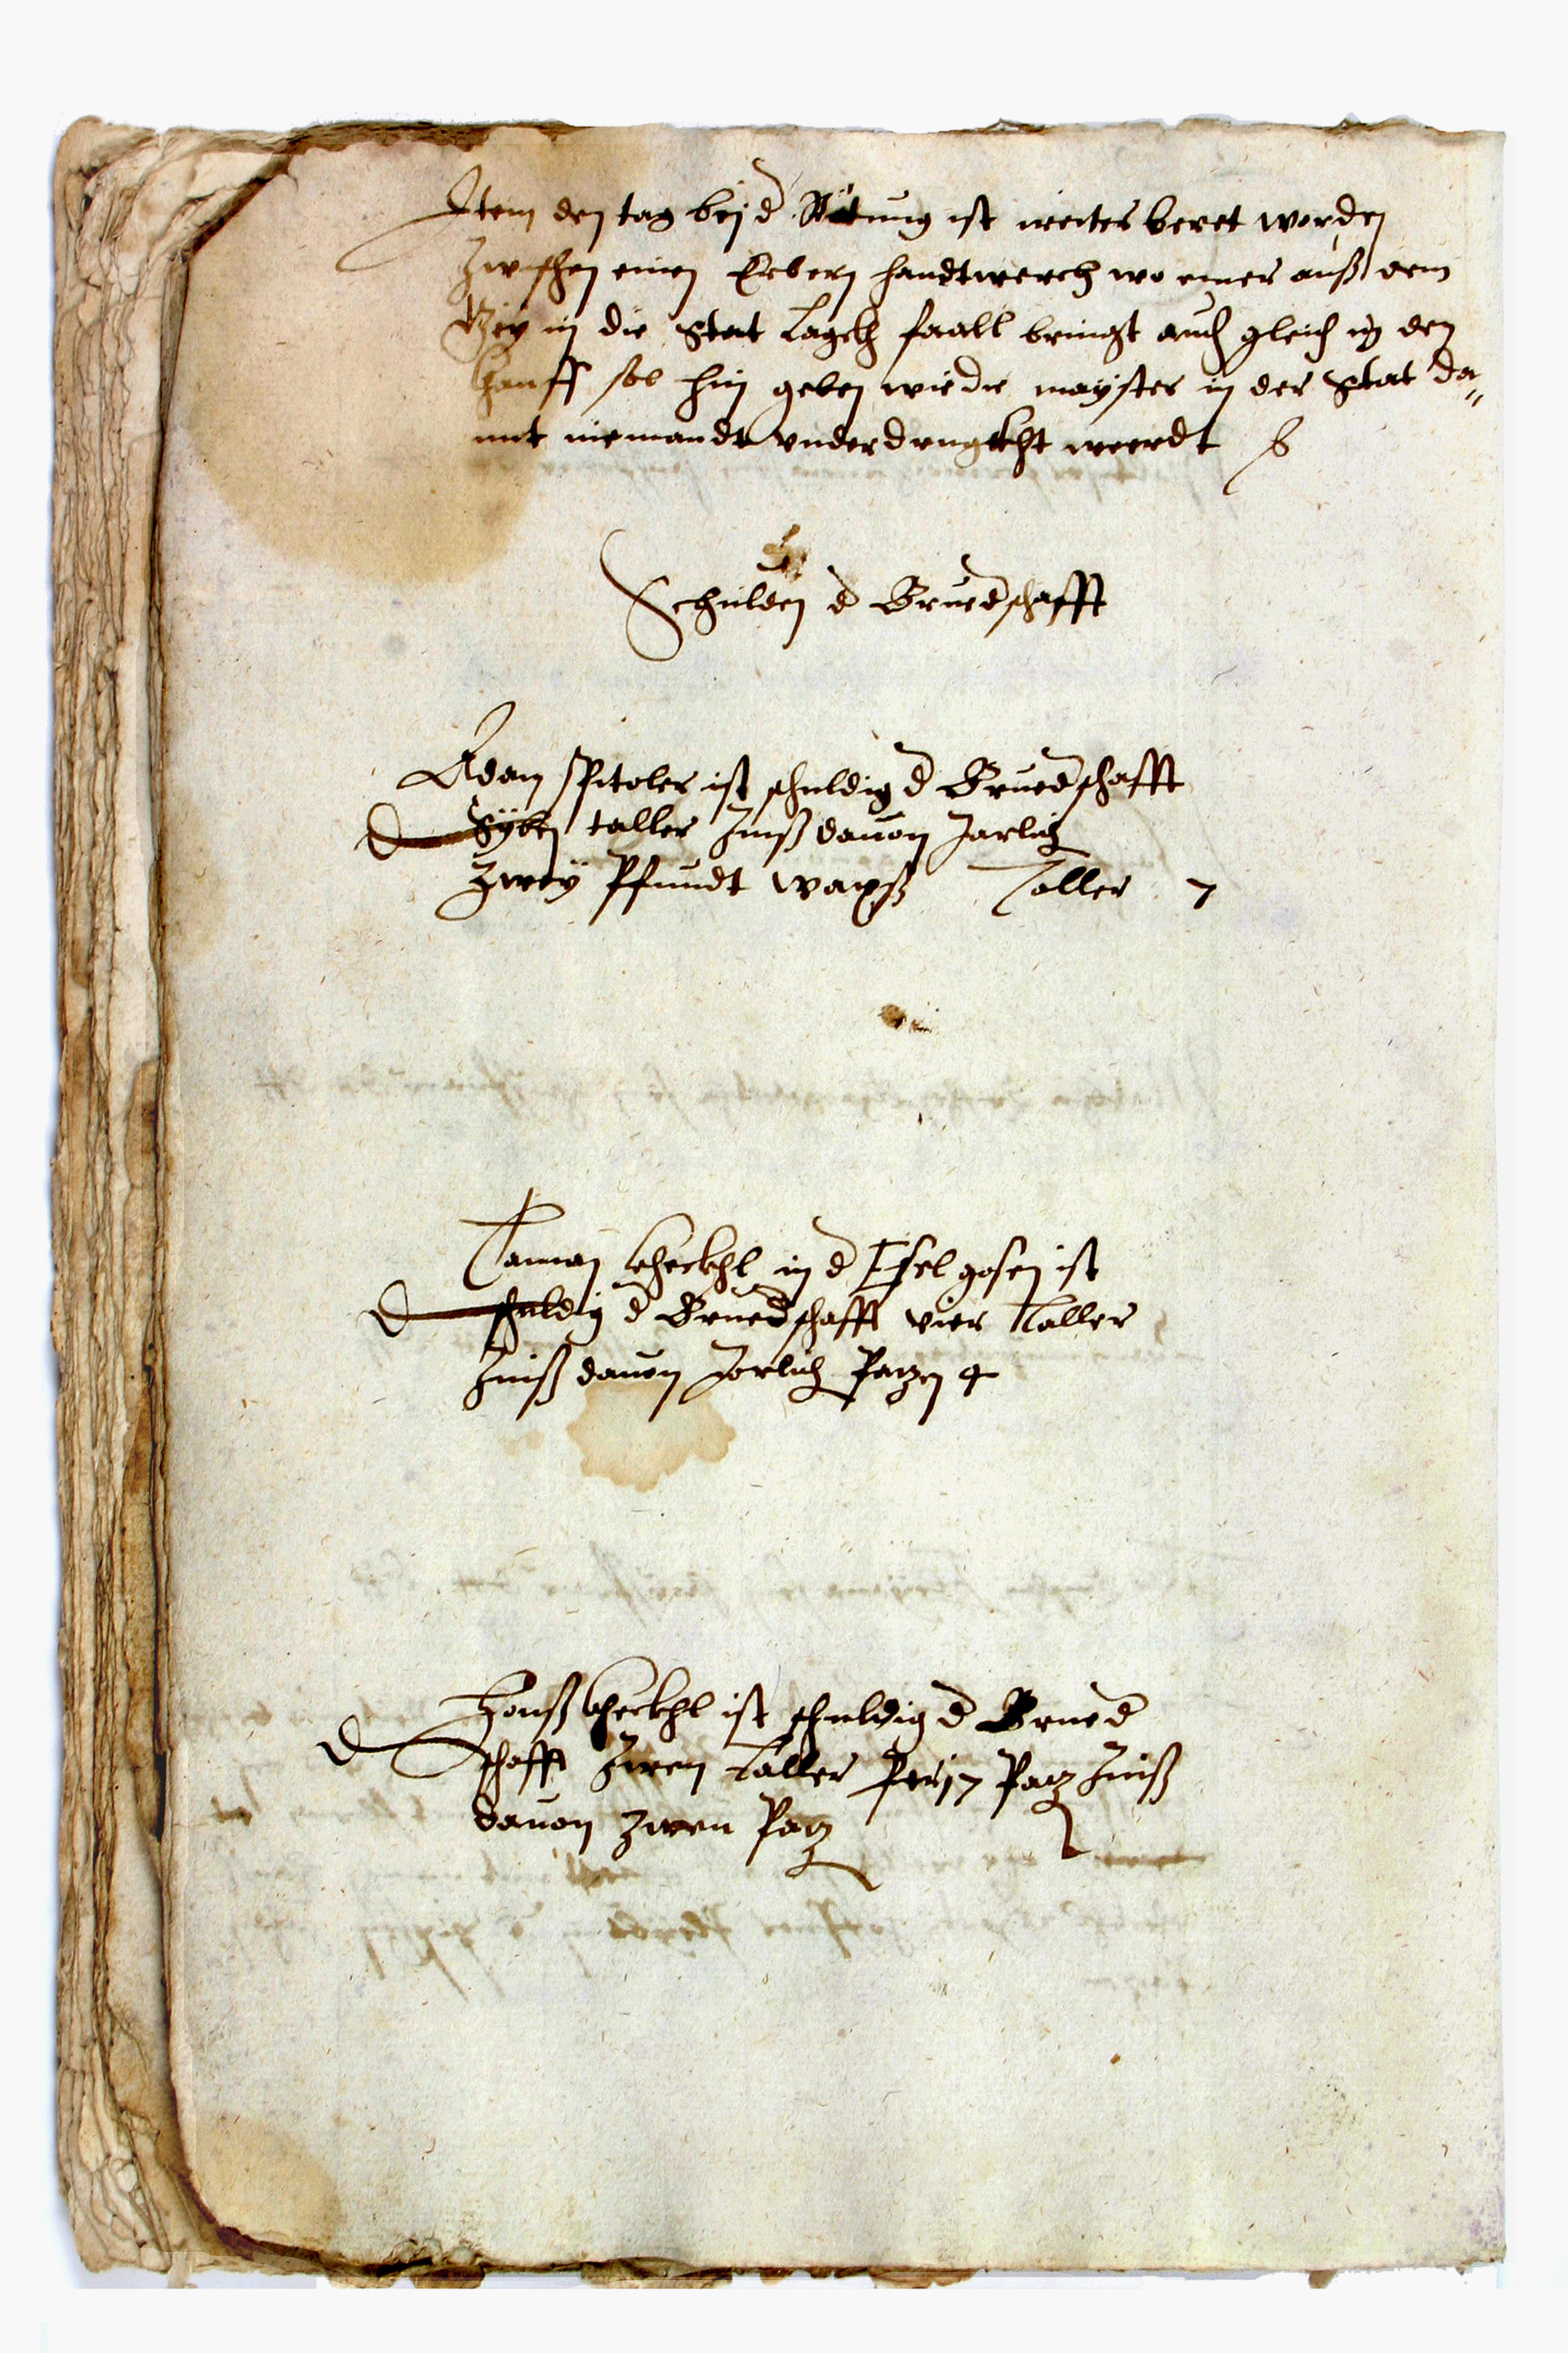 Item den tag bei d Raitung ist weiter beret worden
Zwischen einen Erbern handtwerch wo einer auß dem
in die Stat faall bringt auch gleich in den
khauff sol hin geben wie die mayster in der Stat da„
mit niemandt vnderdrugkht weerdt
Schulden d Bruedschafft
Adam Spitoler ist schuldig d Bruedschafft
Syben taller Zinß dauon Jarlich
Zwey Pfundt waxß Taller 7
in d Isel gosen ist
schuldig d Bruedschafft vier Taller
Zinß dauon Jorlich Patzen 4
Honß kheckhl ist schuldig d Brued
schofft Zwen Taller Per 17 Patz Zinß
dauon zwen Patz